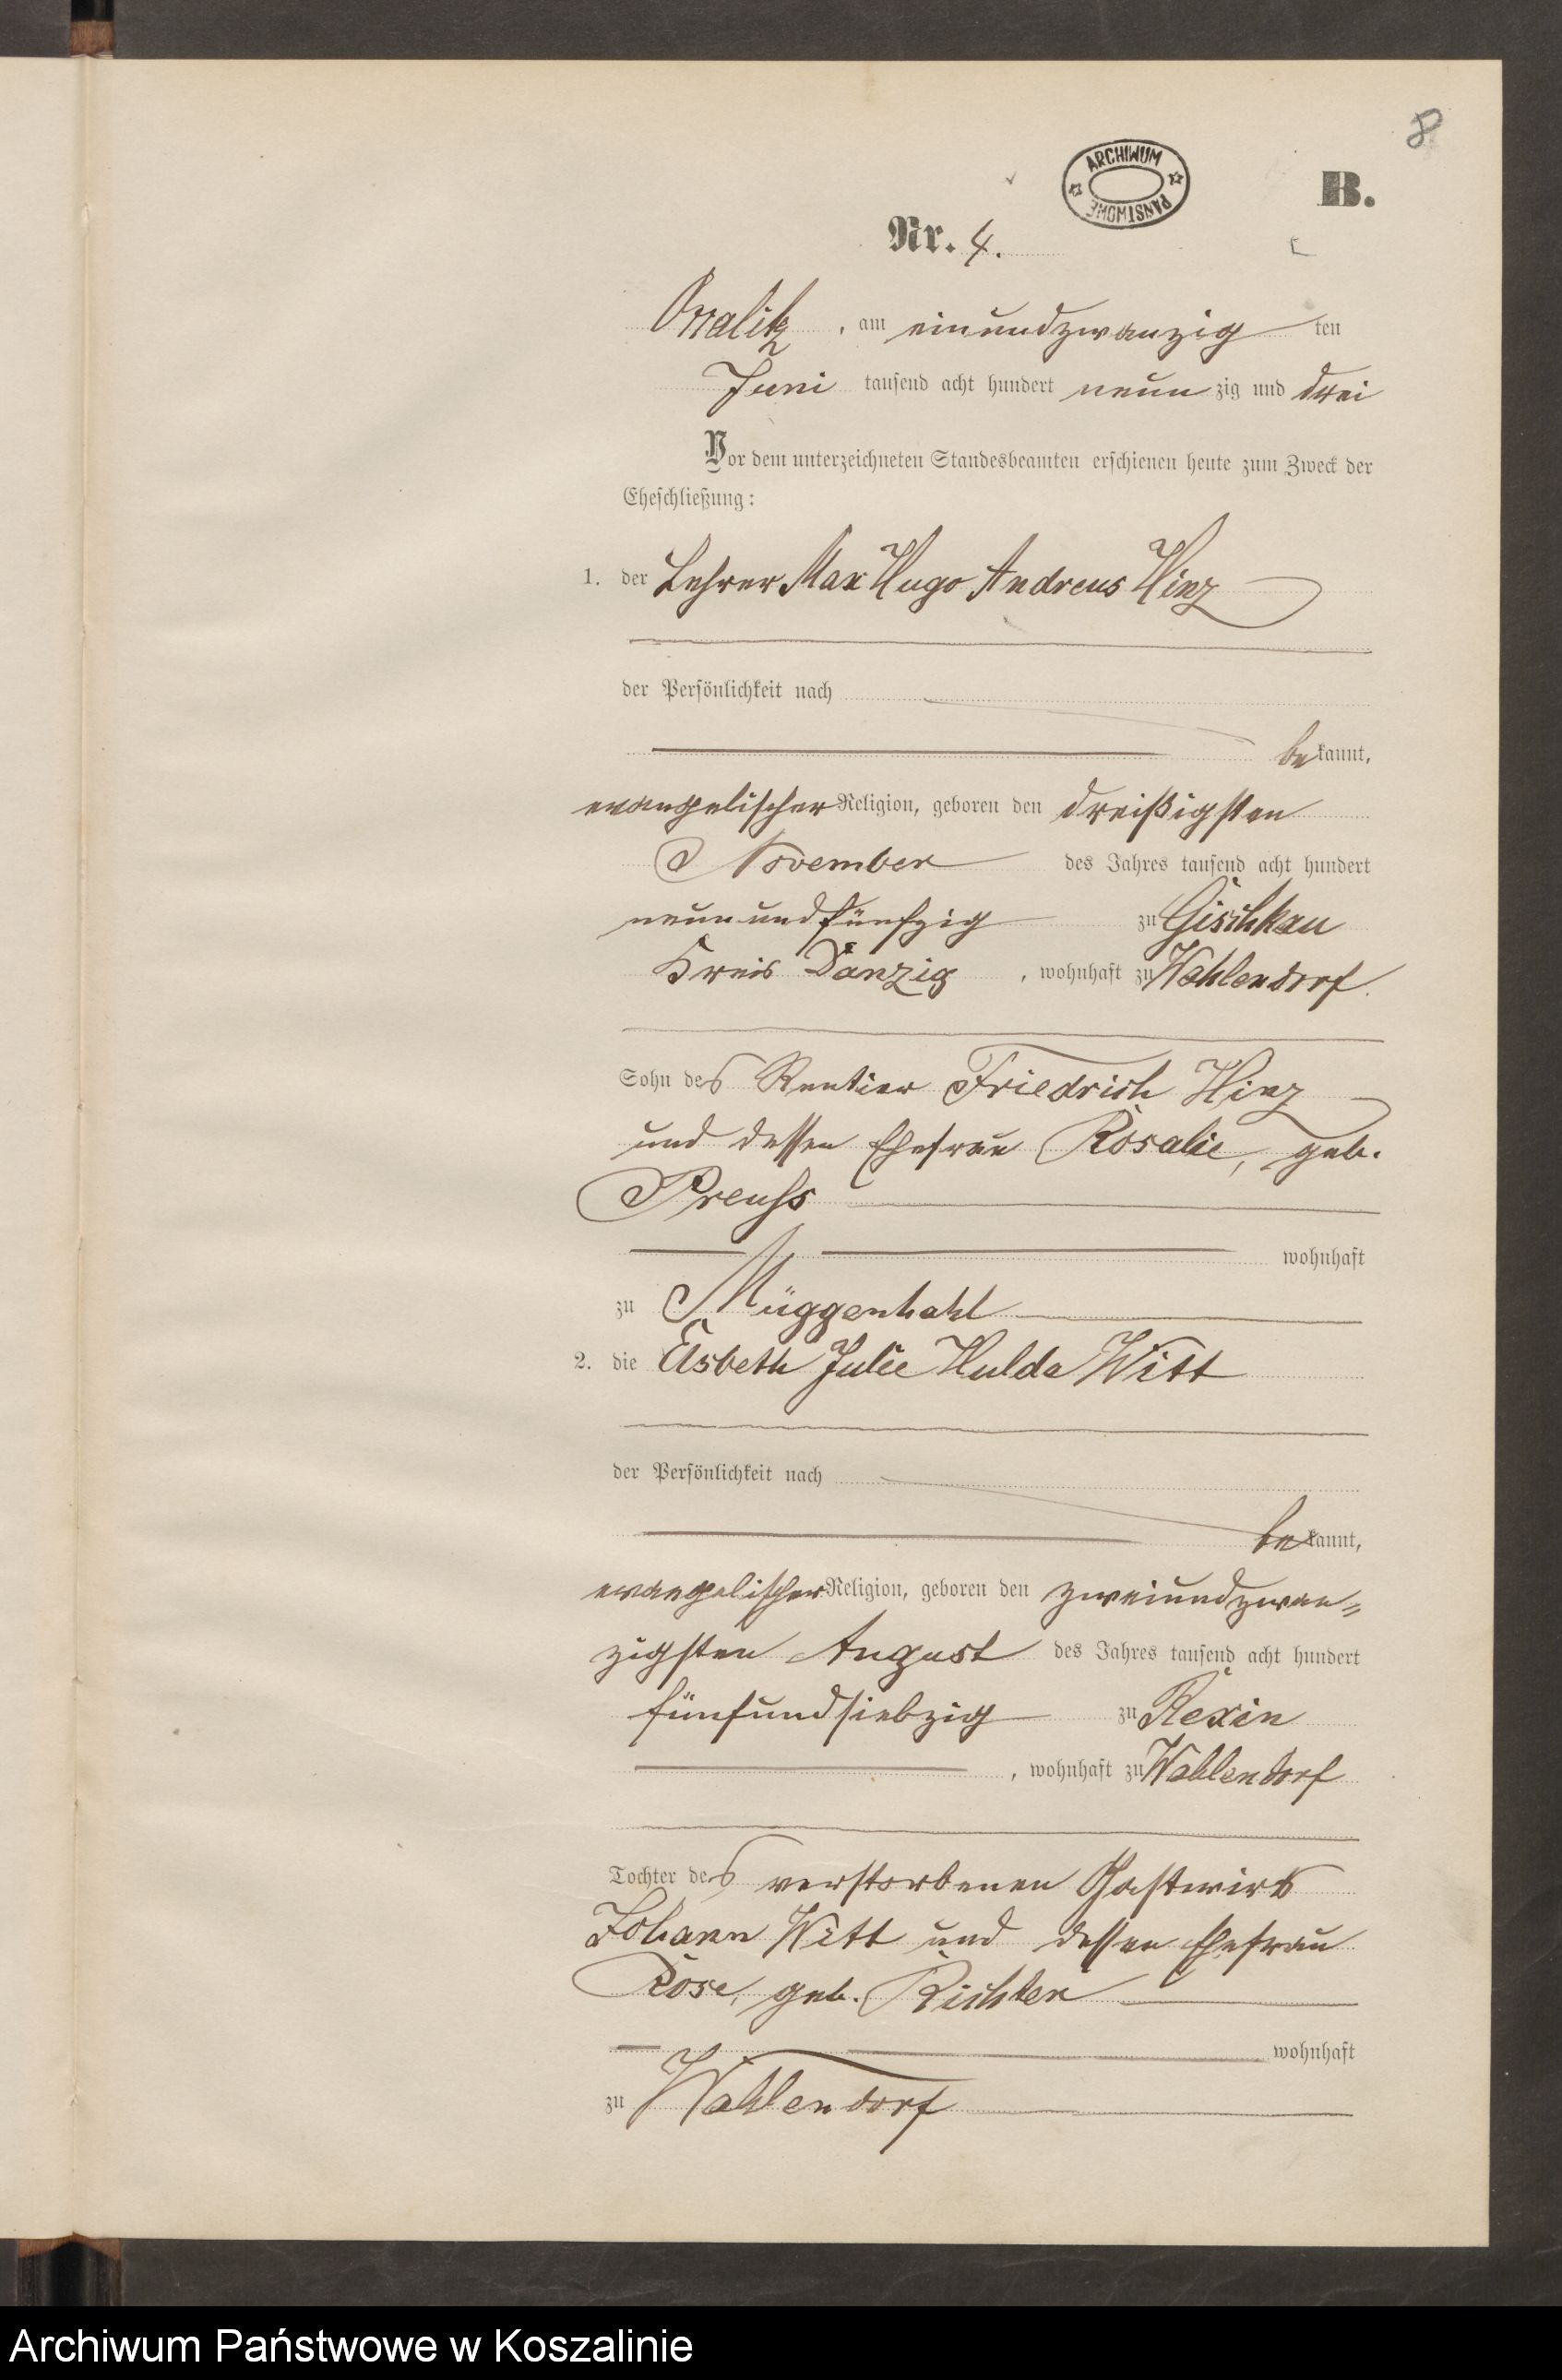 8
ARCHIWUM PAŃSTWOWE
B.
Nr. 4.
Ossalitz, am einundzwanzig ten
Juni tausend acht hundert neun zig und drei
Vor dem unterzeichneten Standesbeamten erschienen heute zum Zweck der
Eheschließung:
1. der Lehrer Max Hugo Andreas Hinz
der Persönlichkeit nach
be kannt,
evangelischer Religion, geboren den dreißigsten
November des Jahres tausend acht hundert
neunundfünfzig zu Gischkau
Kreis Danzig, wohnhaft zu Wahlendorf.
Sohn des Rentier Friedrich Hinz
und dessen Ehefrau Rosalie, geb.
Preuhs
wohnhaft
zu Müggenhahl
2. die Elsbeth Julie Hulda Witt
der Persönlichkeit nach
be kannt,
evangelischer Religion, geboren den zweiundzwan=
zigsten August des Jahres tausend acht hundert
fünfundsiebzig zu Rexin
, wohnhaft zu Wahlendorf
Tochter des verstorbenen Gastwirts
Johann Witt und dessen Ehefrau
Rosa, geb. Richter
wohnhaft
zu Wahlendorf
Archiwum Państwowe w Koszalinie